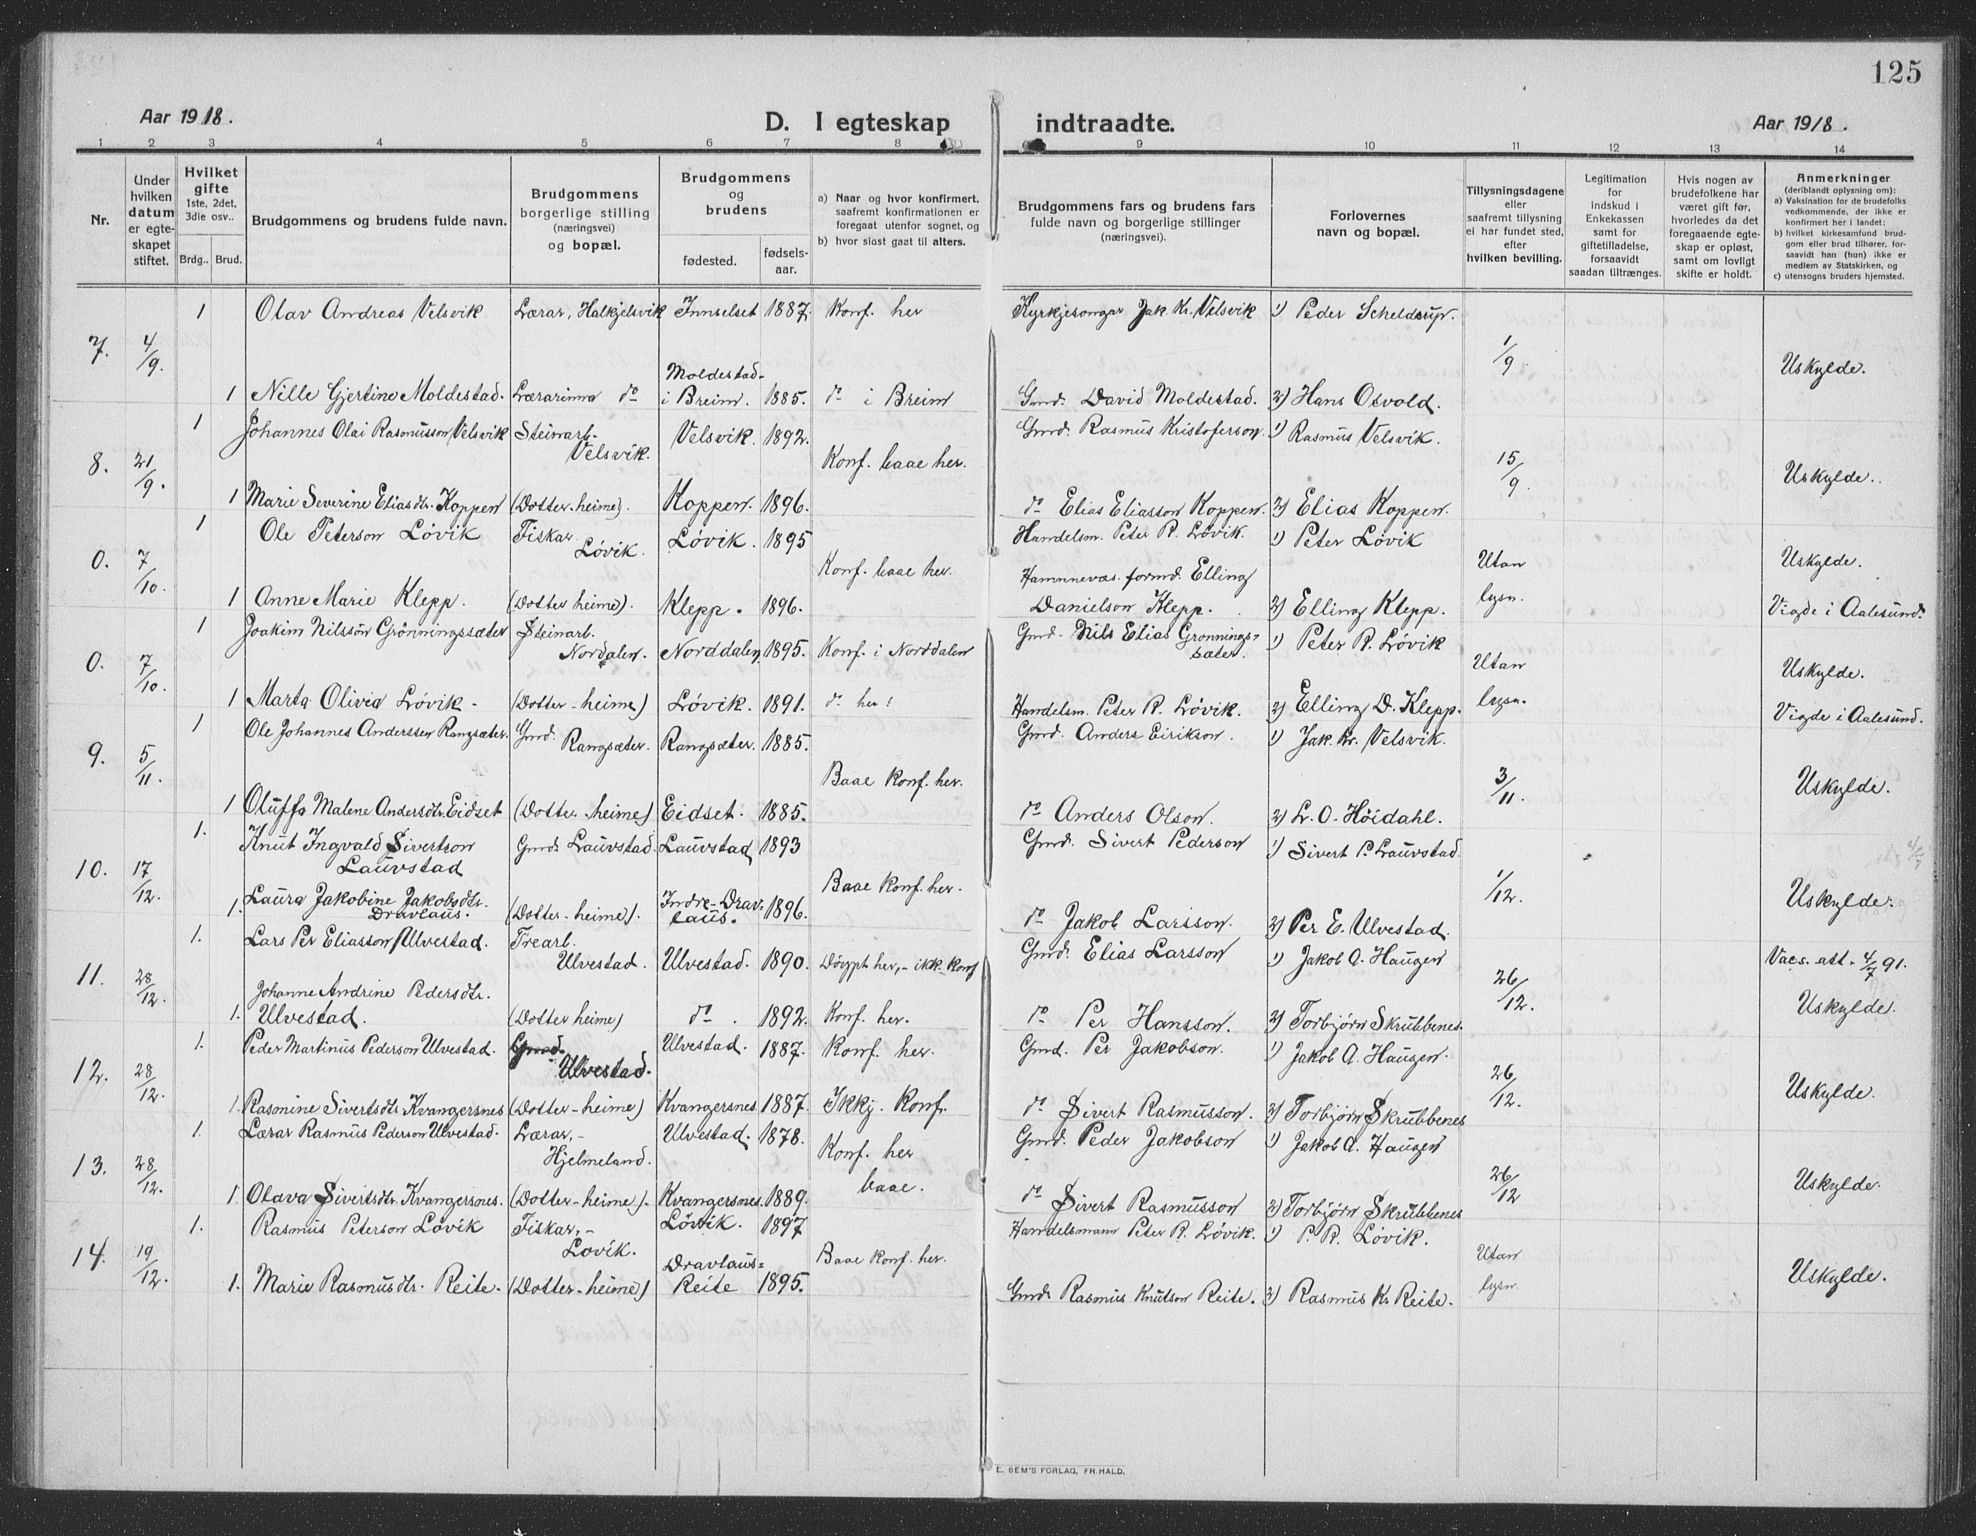 125
Aar 1918.
D. I egteskap indtraadte.
Aar 1918.
1 2 3 4 5 6 7 8 9 10 11 12 13 14
Nr.
Under
hvilken
datum
er egte-
skapet
stiftet.
Hvilket
gifte
1ste, 2det,
3die osv..
Brdg.. Brud.
Brudgommens og brudens fulde navn.
Brudgommens
borgerlige stilling
(næringsvei)
og bopæl.
Brudgommens
og
brudens
fødested.
fødsels-
aar.
a) Naar og hvor konfirmert,
saafremt konfirmationen er
foregaat utenfor sognet, og
b) hvor sidst gaat til alters.
Brudgommens fars og brudens fars
fulde navn og borgerlige stillinger
(næringsvei).
Forlovernes
navn og bopæl.
Tillysningsdagene
eller
saafremt tillysning
ei har fundet sted,
efter
hvilken bevilling.
Legitimation
for
indskud i
Enkekassen
samt for
giftetilladelse,
forsaavidt
saadan tiltrænges.
Hvis nogen av
brudefolkene har
været gift før,
hvorledes da det
foregaaende egte-
skap er opløst,
samt om lovligt
skifte er holdt.
Anmerkninger
(deriblandt oplysning om):
a) Vaksination for de brudefolks
vedkommende, der ikke er
konfirmert her i landet;
b) hvilket kirkesamfund brud-
gom eller brud tilhører, for-
saavidt han (hun) ikke er
medlem av Statskirken, og
c) utensogns bruders hjemsted.
1 Olav Andreas Velsvik Lærar, Halkjelsvik Innselset 1887. Konf. her Kyrkjesongar Jak Kr. Velsvik 1) Peder Scheldrup.
7. 4/9. 1/9. Uskylde.
Moldestad-
1 Nille Gjertine Moldestad. Lærarinna do i Breim. 1885. do i Breim Gmd. David Moldestad. 2) Hans Osvold.
1 Johannes Olai Rasmusson Velsvik Steinarb. Velsvik. 1892. Gmd. Rasmus Kristoferson. 1) Rasmus Velsvik.
Velsvik.
8. 21/9. Konf. baae her. 15/9 Uskylde.
1 Marie Severine Eliasdtr. Koppen (Dotter-heime). Koppen. 1896. do Elias Eliasson Koppen. 2) Elias Koppen.
1 Ole Peterson Løvik Fiskar Løvik. 1895 Handelsm. Peter R. Løvik. 1) Peter Løvik
Løvik.
0. 7/10. Konf. baae her. Hamnevas. formd. Elling Utan Uskylde.
1 Anne Marie Klepp. (Dotter heime). Klepp. 1896. Danielson Klepp. 2) Elling Klepp. lysn. Vigde i Aalesund.
1 Joakim Nilsson Grønningssæter Steinarb. Gmd. Nils Elias Grønnings- 1) Peter R. Løvik
Nordalen. Norddalen, 1895. Konf. i Norddalen sæter.
0. 7/10. Utan Uskylde.
1 Marta Olivia Løvik - (Dotter-heime) Løvik. 1891. do her! Handelsm. Peter R. Løvik. 2) Elling D. Klepp. lysn. Vigde i Aalesund.
1 Ole Johannes Anderssen Rangsæter. Gmd. Rangsæter. Rangsæter. 1885. Gmd. Anders Eirikson. 1) Jak. Kr. Velsvik.
9. 5/11. Baae konf. her. 3/11. Uskylde.
1 Oluffa Malene Andersdtr. Eidset (Dotter heime) Eidset. 1885. do Anders Olson. 2) L. O. Höidahl.
1. Knut Ingvald Sivertson Gmd. Lauvstad. Lauvstad 1893 Gmd. Sivert Pederson 1) Sivert P. Lauvstad.
Lauvstad
10. 17/12. Baae konf. her. 1/12. Uskylde.
Laura Jakobine Jakobsdtr. Indre-Drav-
1. Dravlaus. (Dotter-heime). laus. 1896. do Jakob Larsson. 2) Per E. Ulvestad.
1. Lars Per Eliasson Ulvestad. Trearb. Gmd. Elias Larsson 1) Jakob A. Haugen
Ulvestad. Ulvestad. 1890. Døypt her, - ikk. konf Vacs. att. 4/7 91.
11. 28/12. Johanne Andrine Pedersdtr. 26/12. Uskylde.
1. Ulvestad. (Dotter heime) do. 1892. Konf. her. do Per Hansson. 2) Torbjørn Skrubbenes.
1. Peder Martinus Pederson Ulvestad. Gmd. Ulvestad. 1887. Konf. her. Gmd. Per Jakobson. 1) Jakob A. Haugen.
Ulvestad.
12. 28/12. 26/12. Uskylde.
1. Rasmine Sivertsdtr. Kvangersnes (Dotter-heime) Kvangersnes 1887. Ikkj. Konf. do Sivert Rasmusson. 2) Torbjørn Skrubbenes
1. Lærar Rasmus Pederson Ulvestad. Lærar, - Ulvestad. 1878. Gmd. Peder Jakobson 1) Jakob A. Haugen
Hjelmeland. Konf. her
13. 28/12. baae. 26/12 Uskylde.
1. Olava Sivertsdtr. Kvangersnes. (Dotter-heime)- Kvangersnes. 1889. do Sivert Rasmusson 2) Torbjørn Skrubbenes
1. Rasmus Peterson Løvik Fiskar, - Løvik. 1897 Handelsmann Peter R. Løvik. 1) P. R. Løvik.
Lovik.
14. 19/12. Dravlaus= Baae konf. her. Utan Uskylde.
1. Marie Rasmusdtr. Reite. (Dotter-heime) Reite 1895. Gmd. Rasmus Knutson Reite. 2) Rasmus K. Reite. lysn.
E. SEM'S FORLAG, FR.HALD.